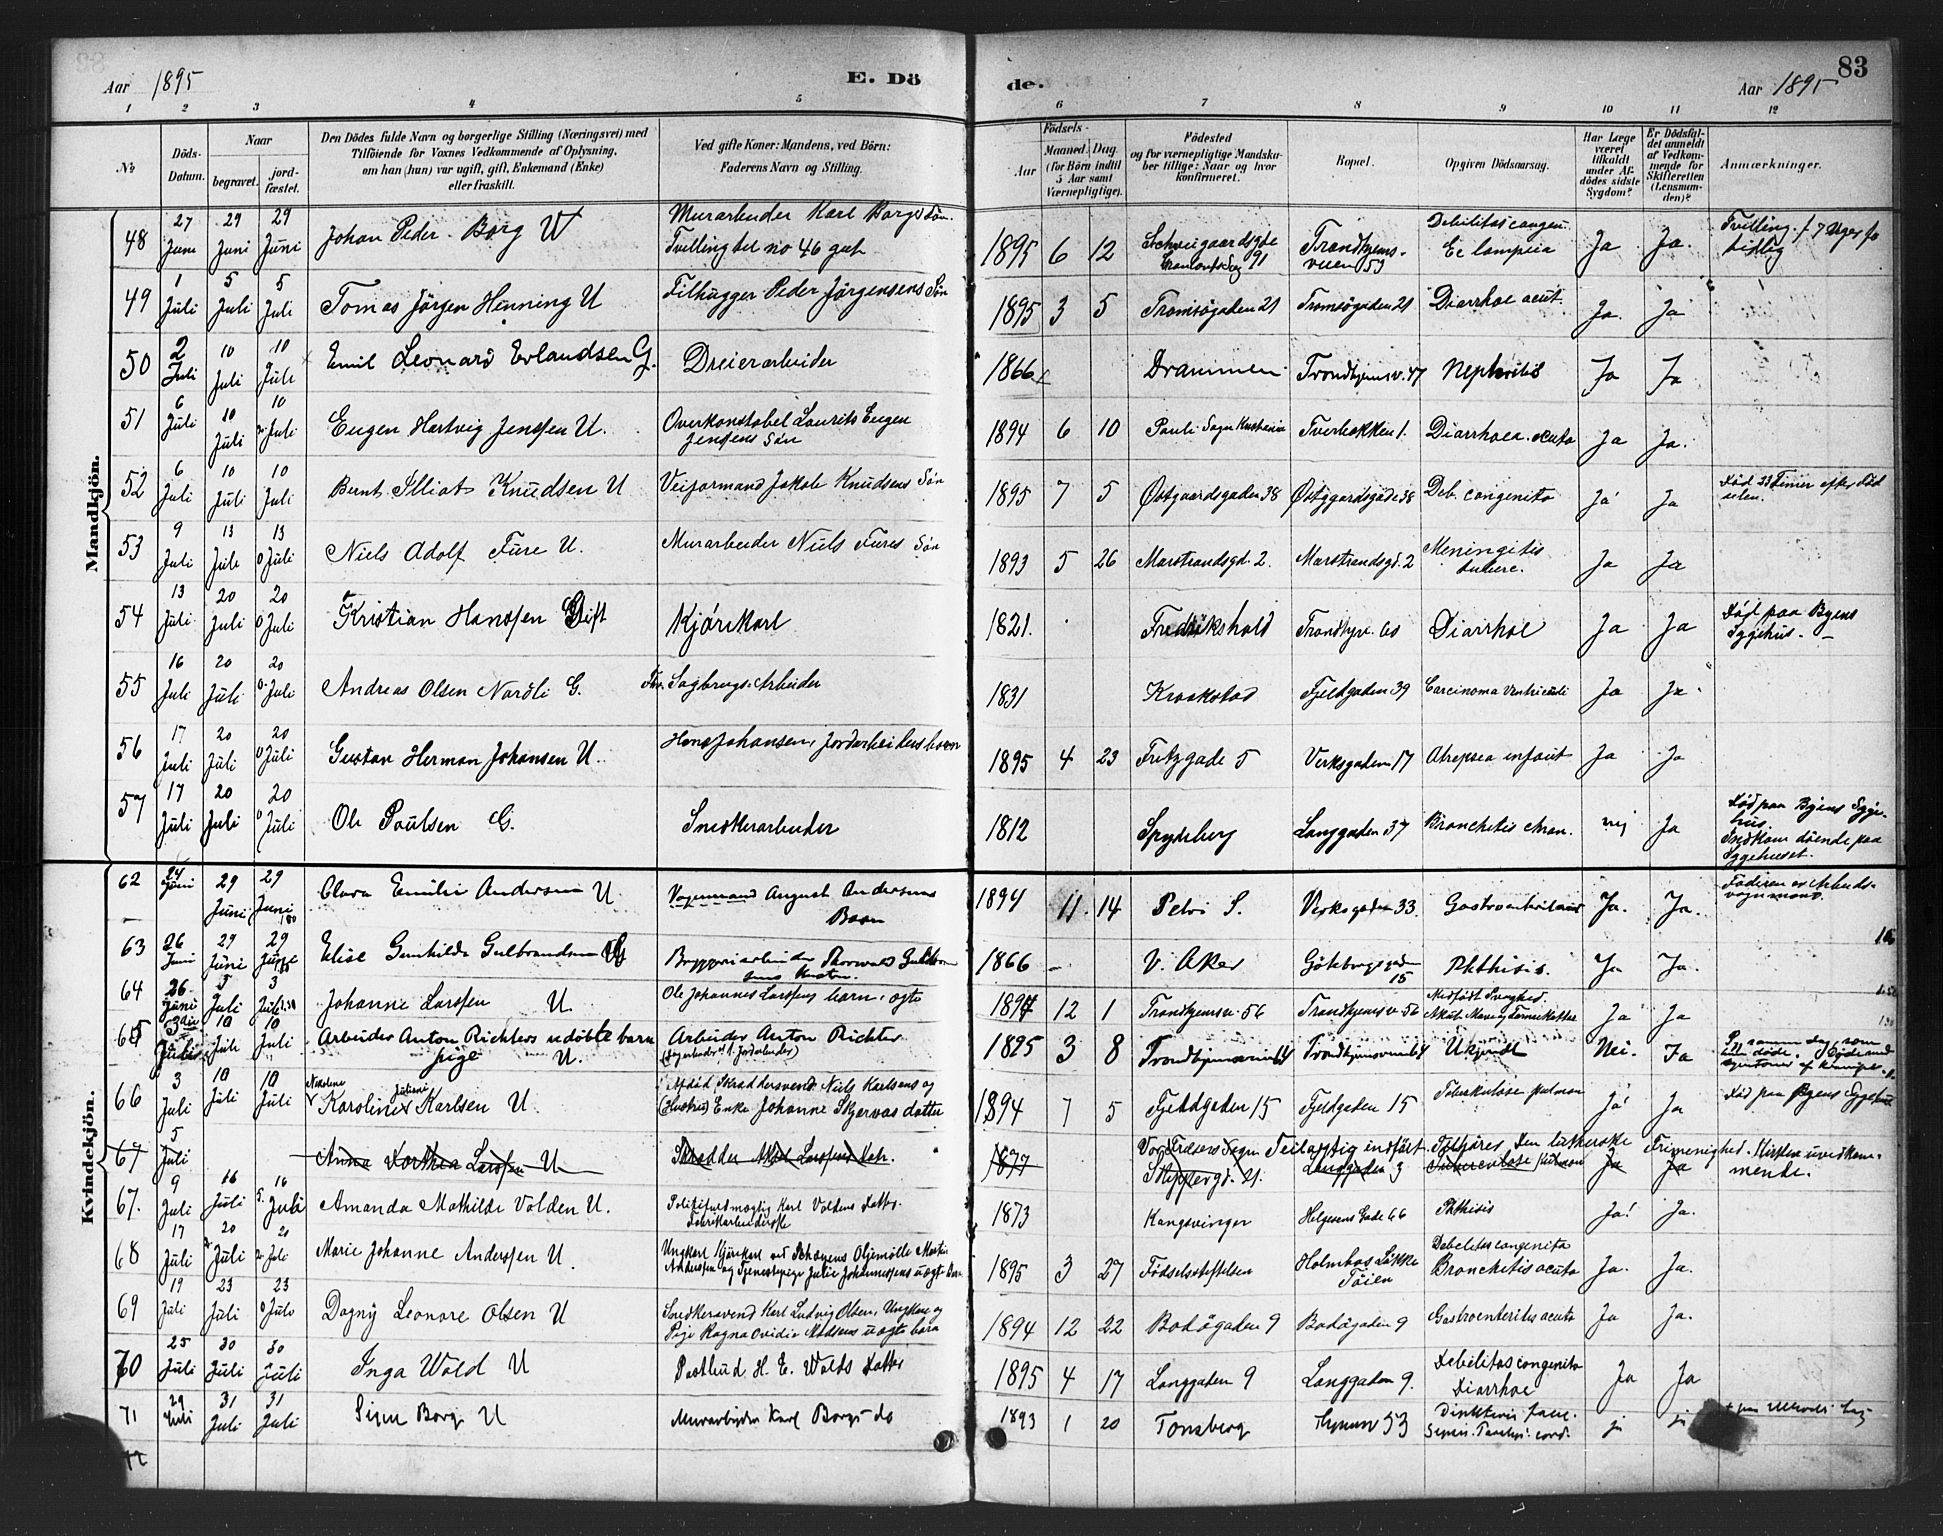 Aar 1895
E. Dö
de.
Aar 1895
83
1 2 3 4 5 6 7 8 9 10 11 12
No
Döds-Datum.
Naar
begravet.
jord-fæstet.
Den Dödes fulde Navn og borgerlige Stilling (Næringsvei) med
Tilföiende for Voxnes Vedkommende af Oplysning,
om han (hun) var ugift, gift, Enkemand (Enke)
eller fraskilt.
Ved gifte Koner: Mandens, ved Börn:
Faderens Navn og Stilling.
Födsels-
Aar
Maaned. Dag.
(for Börn indtil
5 Aar samt
Værnepligtige).
Födested
og for værnepligtige Mandska-
ber tillige: Naar og hvor
konfirmeret.
Bopæl.
Opgiven Dödsaarsag.
Har Læge
været
tilkaldt
under Af-
dödes sidste
Sygdom?
Er Dödsfal-
det anmeldt
af Vedkom-
mende for
Skifteretten
(Lensman-
den)?
Anmærkninger.
Mandkjön.
48 27 Juni 29 Juni 29 Juni Johan Peder Borg U Murarbeider Karl Borgs Sön. Tvilling til no 46 1895 6 12 Schweigaardsgde 91 Trondhjems-veien 53 Debilitas congen. Eclampsia Ja Ja. Tvilling. 7 Uger for tidlig
49 1 Juli 5 Juli 5 Juli Tomas Jörgen Henning U Filhugger Peder Jörgensens Sön 1895 3 5 Tromsögaden 21 Tromsögaden 21 Diarrhoe acut. Ja. Ja
50 2 Juli 10 Juli 10 Juli Emil Leonard Erlandsen G. Dreierarbeider 1866 Drammen Trondhjemsv. 47 Nephritis Ja Ja
51 6 Juli 10 Juli 10 Juli Eugen Hartvig Jenssen U. Overkonstabel Laurits Eugen Jensens Sön 1894 6 10 Pauli Sogn Kristiania Tverbakken 1. Diarrhoea acuta Ja Ja.
52 6 Juli 10 Juli 10 Juli Bernt Elliot Knudsen U Veiformand Jakob Knudsens Sön 1895 7 5 Østgaardsgaden 38 Østgaardsgade 38 Deb. congenita Ja Ja Död 23 Timer efter Födselen.
53 9 Juli 13 Juli 13 Juli Niels Adolf Fure U. Murarbeider Niels Fures Sön 1893 5 26 Marstrandsgd. 2. Marstrandsgd. 2 Meningitis tuberc. Ja Ja
54 13 Juli 20 Juli 20 Juli Kristian Hanssen Gift Kjörekarl 1821. Fredrikshald Trondhjv. 60 Diarrhoe Ja Ja Död paa Byens Sygehus. –
55 16 Juli 20 Juli 20 Juli Andreas Olsen Nordli G. Fhv. Sagbrugs-Arbeider 1831 Kraakstad Fjeldgaden 39 Carcinoma ventriculi Ja Ja
56 17 Juli 20 Juli 20 Juli Gustav Herman Johansen U. Hans Johansen, Jordarbeiders barn 1895 4 23 Fritzgade 5 Verksgaden 17 Atrepsia infant Ja Ja
57 17 Juli 20 Juli 20 Juli Ole Paulsen G. Snedkerarbeider 1812 Spydeberg Langgaden 37 Bronchitis chron. nej Ja Död paa Byens Sygehus. Indkom döende paa Sygehuset.
Kvindekjön.
62 24 Juni 29 Juni 29 Juni Clara Emilie Andersen U. Vognmand August Andersens Barn 1894 11. 14 Petri S. Verksgaden 33. Ja. Ja. Faderen er Arbeidsvognmand.
63 26 Juni 29 Juni 29 Juni Elise Gunhilda Gulbrandsen G Bryggeriarbeider Thorvald Gulbrandsens Hustru. 1866 – V. Aker Göteborggaden 15 Phthisis. Ja Ja.
64 26 Juni 3 Juli 3 Juli Johanne Larssen U. Ole Johannes Larssens barn, ægte 1894 12 1 Trondhjemsv. 56 Trondhjemsv. 56 Medfödt Svaghed. Ja Ja
65 3die Juli 10 Juli 10 Juli Arbeider Anton Richters udöbte barn pige U. Arbeider Anton Richter 1895 3 8 Trondhjemsveien Trondhjemsveien Ukjendt Nei. Ja
66 3 Juli 10 Juli 10 Juli Nikoline Karoline Juliane Karlsen U. Afdöd Skræddersvend Niels Karlsens og (Hustru) Enke Johanne datter 1894 7 5 Fjeldgaden 15 Fjeldgaden 15 Tuberkulose pulmon Ja Ja Död paa Byens Sygehus
67 5 Juli Anna Dorthea Larssen U Skrædder Larssens Datr. 1877 Vor Frelsers Sogn Skippergd. Langgaden 3 Tuberculose pulmon Ja Ja Feilagtig indfört. Tilhörer Den lutherske Frimenighed. Kirken uvedkommende.
67. 9 Juli 16 Juli 16 Juli Amanda Mathilde Volden U. Politifuldmægtig Karl Voldens Datter. Fabrikarbeiderske 1873 Kongsvinger Helgesens Gade 66 Phthisis Ja! Ja.
68 17 Juli 20 Juli 20 Juli Marie Johanne Anderssen U. Ungkarl Kjörekarl ved Schøyens Oljemölle Martin Anderssen og Tjenestepige Julie Johannessens uægte barn 1895 3 27 Födselsstiftelsen Holmboes Lökke Töien Debilitas congenita Bronchitis acuta Ja. Ja.
69 19 Juli 23 Juli 23 Juli Dagny Leonore Olsen U Snedkersvend Karl Ludvig Olsen, Ungkar og Pige Ragna Ovidie Madsens uægte barn 1894 12 22 Bodögaden 9 Bodögaden 9 Gastroenteritis acuta Ja Ja.
70 25 Juli 30 Juli 30 Juli Inga Wold U Postbud H. E. Wolds Datter 1895 4 17 Langgaden 9 Langgaden 9. Debilitas congenita Diarrhoe Ja Ja
71 29 Juli 31 Juli 31 Juli Signe Borg U Murarbeider Karl Borgs do 1893 1 20 Tonsberg 53 ja ja
72